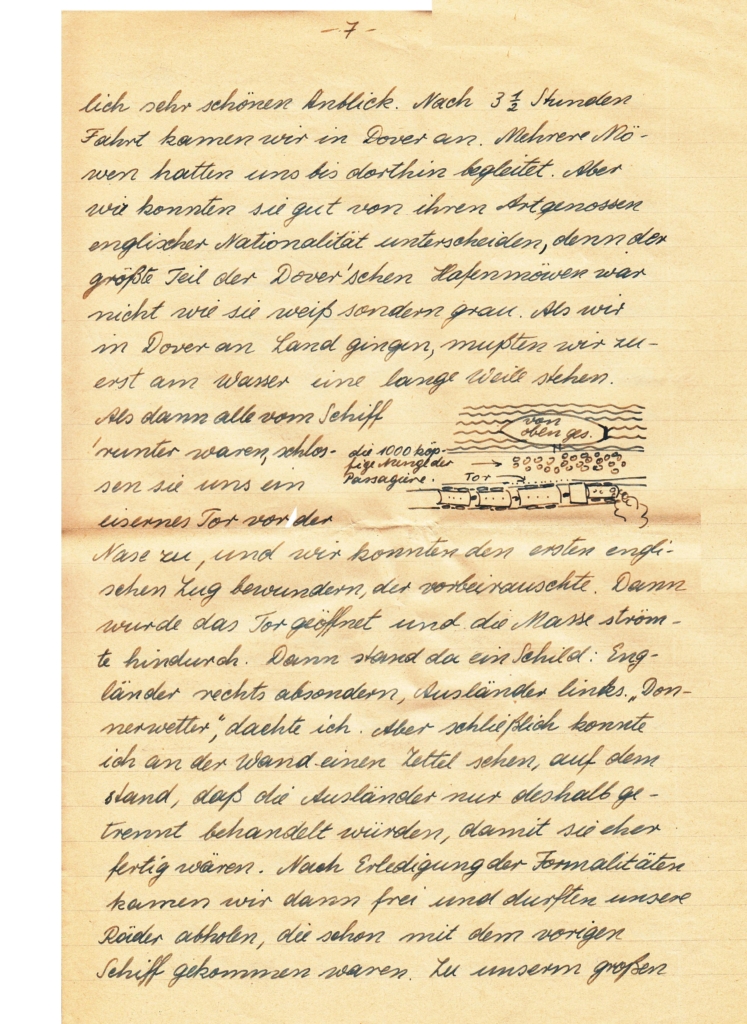 - 7 -
lich sehr schönen Anblick. Nach 3 ½ Stunden
Fahrt kamen wir in Dover an. Mehrere Mö-
wen hatten uns bis dorthin begleitet. Aber
wir konnten sie gut von ihren Artgenossen
englischer Nationalität unterscheiden, denn der
größte Teil der Dover'schen Hafenmöwen war
nicht wie sie weiß sondern grau. Als wir
in Dover an Land gingen, mußten wir zu-
erst am Wasser eine lange Weile stehen.
Als dann alle vom Schiff
'runter waren, schlos-
sen sie uns ein
eisernes Tor vor der
von
oben ges.
die 1000 köp-
fige Menge der
Passagiere.
Tor
Nase zu, und wir konnten den ersten engli-
schen Zug bewundern, der vorbeirauschte. Dann
wurde das Tor geöffnet und die Masse ström-
te hindurch. Dann stand da ein Schild: Eng-
länder rechts absondern, Ausländer links. „Don-
nerwetter", dachte ich. Aber schließlich konnte
ich an der Wand einen Zettel sehen, auf dem
stand, daß die Ausländer nur deshalb ge-
trennt behandelt würden, damit sie eher
fertig wären. Nach Erledigung der Formalitäten
kamen wir dann frei und durften unsere
Räder abholen, die schon mit dem vorigen
Schiff gekommen waren. Zu unserm großen